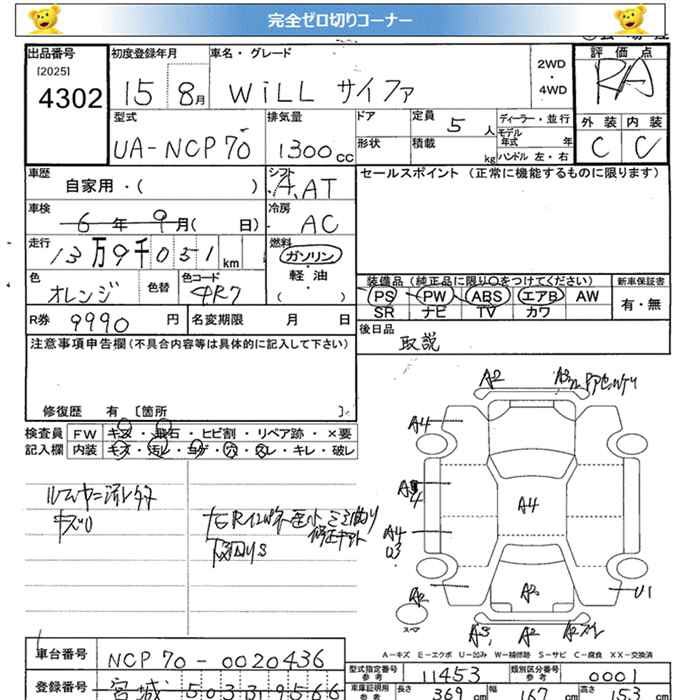 完全ゼロ切りコーナー
出品番号 初度登録年月 車名・グレード 2WD ・ 4WD 評価点
[2025]
4302 15 8月 WiLL サイファ RA
型式 排気量 ドア 定員 5 人 ディーラー・並行 外装 内装
UA-NCP70 1300cc 形状 積載 kg モデル年式 年 ハンドル 左・右 C C
車歴 シフト セールスポイント (正常に機能するものに限ります)
自家用・( ) AT
車検 冷房
6年9月( 日) AC
走行 燃料
13万9千051km ガソリン
軽・油
( ・ )
色 色替 色コード 装備品 (純正品に限り○をつけてください) 新車保証書
オレンジ 4R7 PS PW ABS エアB AW 有・無
SR ナビ TV カワ
R券 9990 円 名変期限 月 日 後日品
取説
注意事項申告欄(不具合内容等は具体的に記入して下さい)
修復歴 有 [箇所 ]
検査員 FW キズ・飛石・ヒビ割・リペア跡・×要
記入欄 内装 キズ・汚レ・コゲ・穴・スレ・キレ・破レ
キズU
A2
A4
A4
A4
A4
U3
A2
A2
U1
スペア
A3 A2
A-キズ E-エクボ U-凹み W-補修跡 S-サビ C-腐食 XX-交換済
車台番号 NCP70-0020436
型式指定番号 参考 11453 類別区分番号 参考 0001
登録番号 宮城 503 3 9566
車庫証明用 参考 長さ 369 cm 幅 167 cm 高さ 153 cm